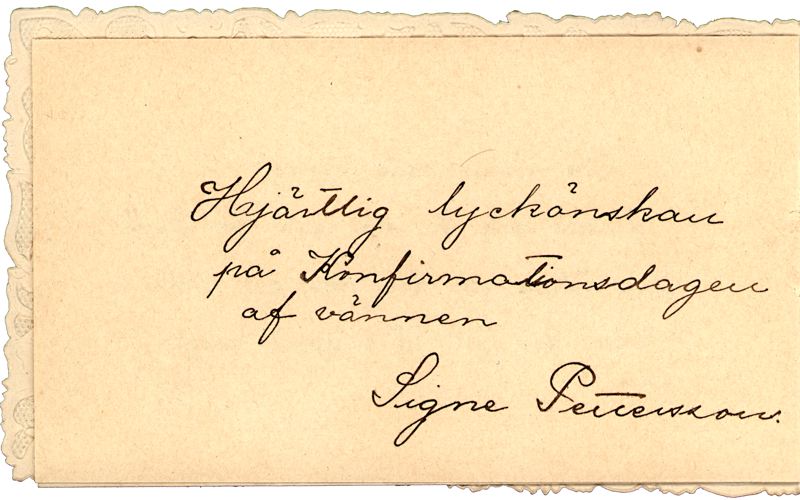 Hjärtlig lyckönskan
på Konfirmationsdagen
af vännen
Signe Pettersson.